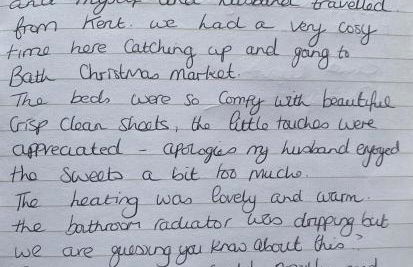 and myself and husband travelled
from Kent. we had a very cosy
time here catching up and going to
Bath Christmas market.
The beds were so comfy with beautiful
crisp clean sheets, the little touches were
appreciated - apologies my husband enjoyed
the sweets a bit too much.
The heating was lovely and warm.
the bathroom radiator was dripping but
we are guessing you know about this?